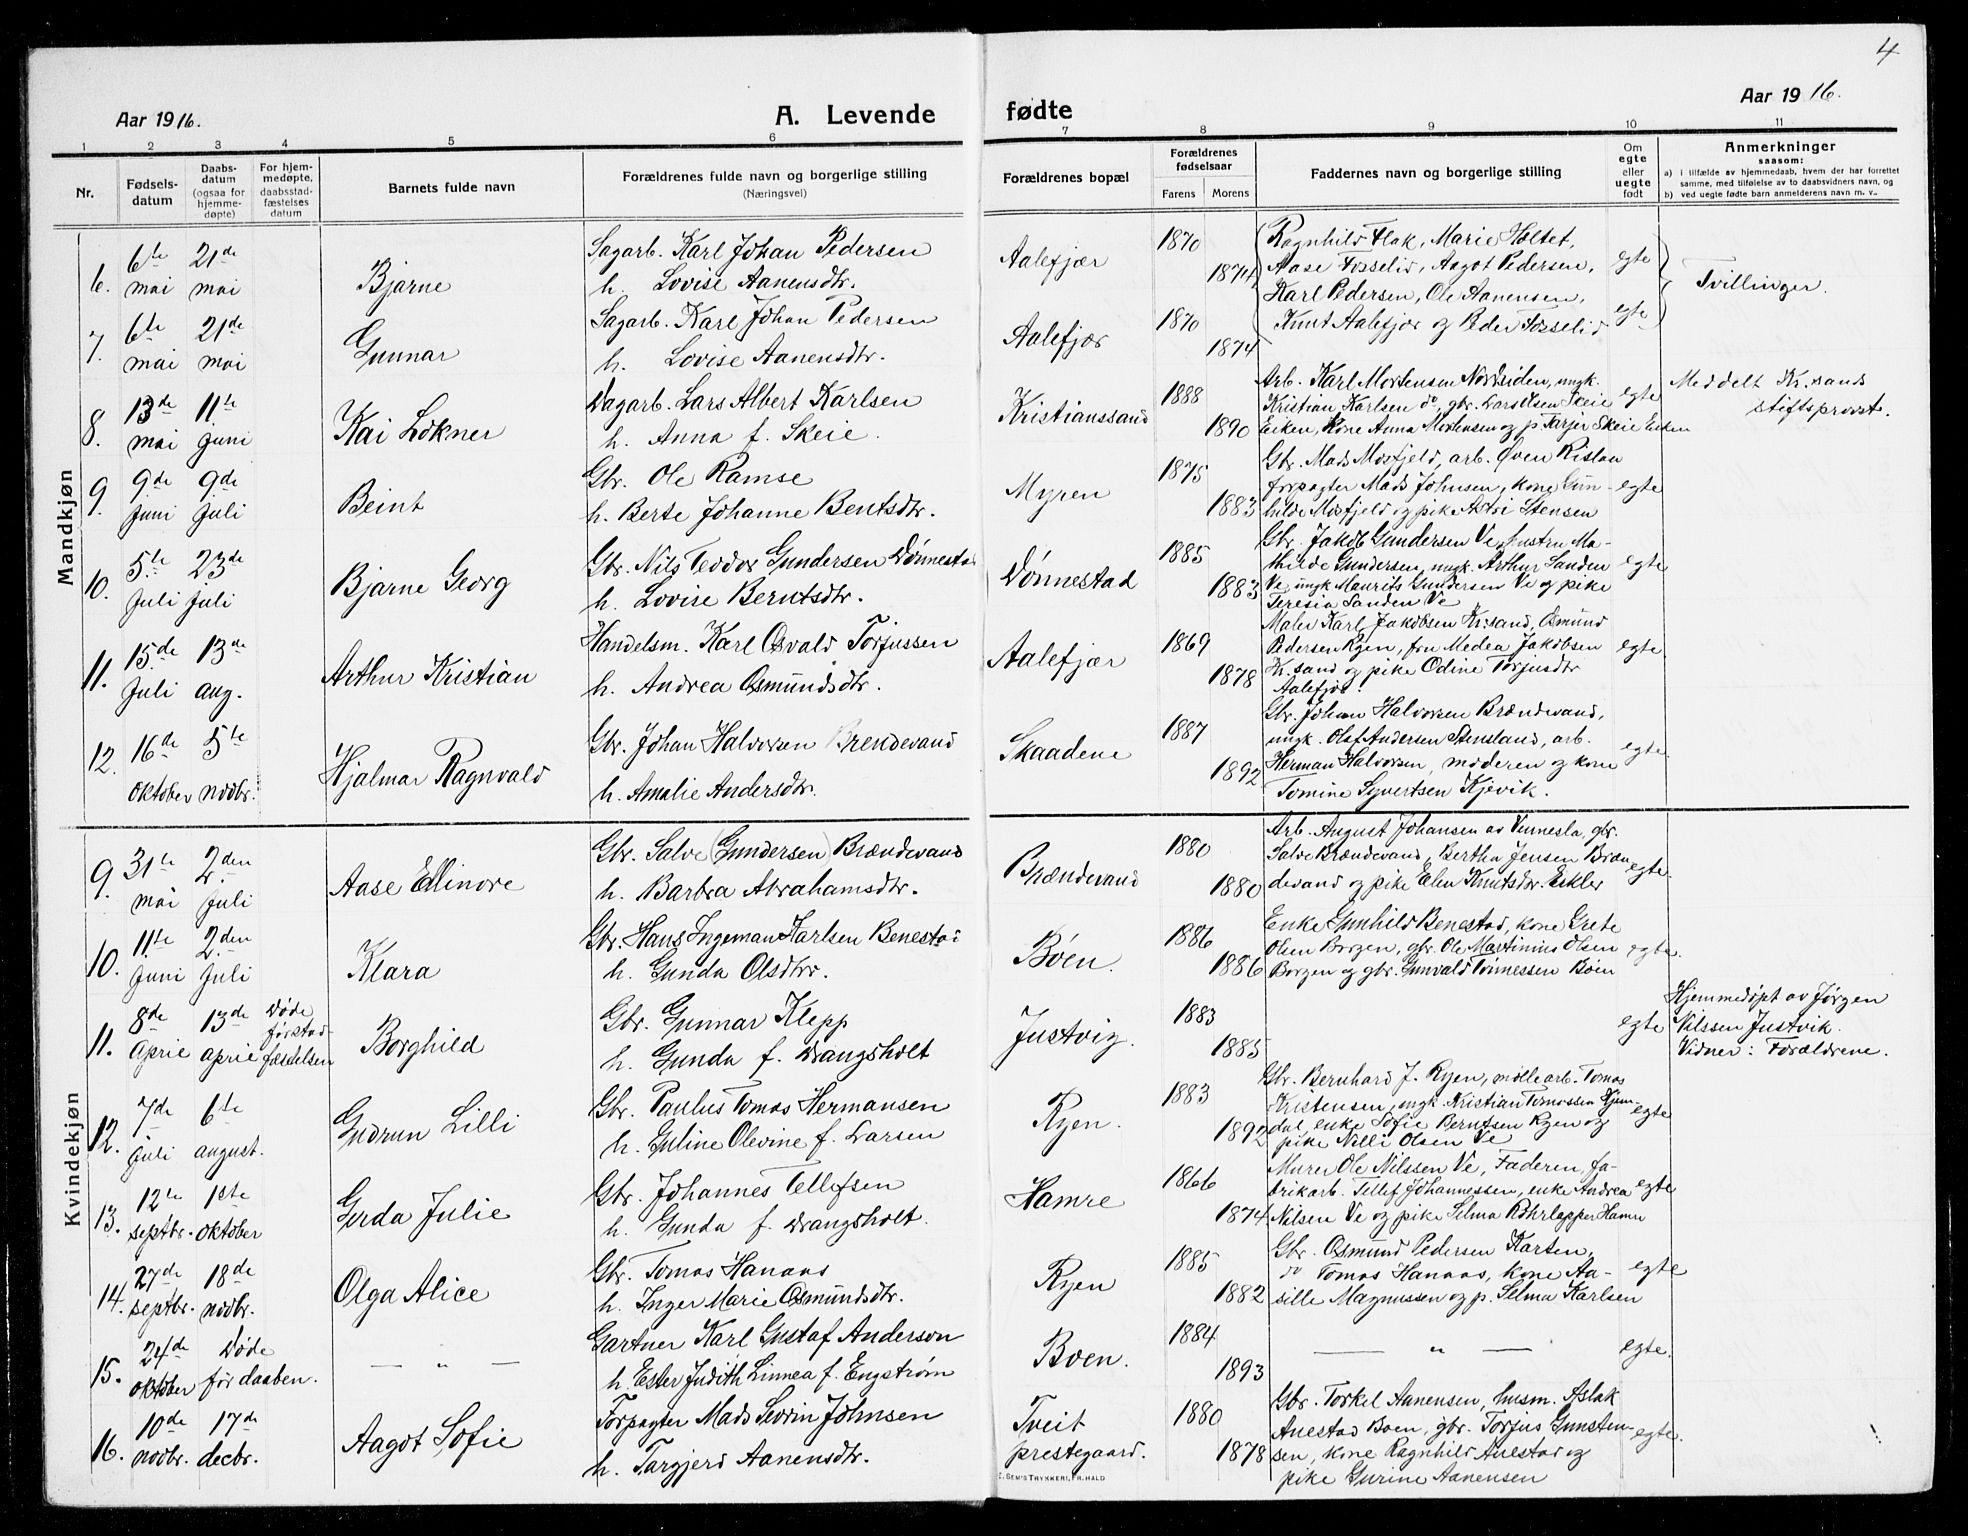 4
Aar 1916.
A. Levende
fødte
Aar 1916.
1 2 3 4 5 6 7 8 9 10 11
Nr.
Fødsels-
datum
Daabs-
datum
(ogsaa for
hjemme-
døpte)
For hjem-
medøpte,
daabsstad-
fæstelses
datum
Barnets fulde navn
Forældrenes fulde navn og borgerlige stilling
(Næringsvei)
Forældrenes bopæl
Forældrenes
fødselsaar
Farens Morens
Faddernes navn og borgerlige stilling
Om
egte
eller
uegte
født
Anmerkninger
saasom:
a) i tilfælde av hjemmedaab, hvem der har forrettet
samme, med tilføielse av to daabsvidners navn, og
b) ved uegte fødte barn anmelderens navn m. v..
Mandkjøn
6. 6te mai 21de mai
Bjarne
Sagarb. Karl Johan Pedersen
h. Lovise Aanensdtr.
Aalefjær
1870
1874
Ragnhild Flak, Marie Holtet,
Aase Fosselid, Aagot Pedersen,
Karl Pedersen, Ole Aanensen,
Knut Aalefjær og Peder Fosselid
egte
Tvillinger.
7. 6te mai 21de mai
Gunnar
Sagarb. Karl Johan Pedersen
h. Lovise Aanensdtr.
Aalefjær
1870
1874
egte
8. 13de mai 11te juni
Kai Lokner
Dagarb. Lars Albert Karlsen
h. Anna f. Skeie.
Kristianssand
1888
1890
Arb. Karl Mortensen Nordsiden, ungk.
Kristian Karlsen do, gbr. Lars Olsen Skeie
Eiken, Kone Anna Mortensen og p. Tarjer Skeie Eiken
egte
Meddelt Kr.sands
stiftsprovst.
9. 9de juni 9de juli
Beint
Gbr. Ole Ramse
h. Berte Johanne Bentsdtr.
Myren
1875
1883
Gbr. Mads Mosfjeld, arb. Øven Rislaa
forpagter Mads Johnsen, kone Gun-
hilde Mosfjeld og pike Astri Stensen
egte
10. 5te Juli 23de Juli
Bjarne Georg
Gbr. Nils Teodor Gundersen Dønnestad
h. Lovise Berntsdtr.
Dønnestad
1885
1883
Gbr. Jakob Gundersen Ve, hustru Ma-
thilde Gundersen, ungk. Arthur Sanden
Ve, ungk Maurits Gundersen Ve og pike
Teresia Sanden Ve
egte
11. 15de Juli 13de aug.
Arthur Kristian
Handelsm. Karl Osvald Torjussen
h. Andrea Osmundsdtr.
Aalefjær
1869
1878
Maler Karl Jakobsen Kr.sand, Osmund
Pedersen Ryen, fru Medea Jakobsen
Kr.sand og pike Odine Torjusdtr
Aalefjær.
egte
12. 16de oktober 5te novbr.
Hjalmar Ragnvald
Gbr. Johan Halvorsen Brendevand
h. Amalie Andersdtr.
Skaadene
1887
1892
Gbr. Johan Halvorsen Brændevand,
ungk. Olaf Andersen Stensland, arb.
Herman Halvorsen, moderen og kone
Tomine Syvertsen Kjevik.
egte
Kvindekjøn
9. 31te mai 2den juli
Aase Ellinore
Gbr. Salve (Gundersen) Brændevand
h. Barbra Abrahamsdtr.
Brændevand
1880
1880
Arb. August Johansen av Vennesla, gbr.
Salve Brændevand, Bertha Jensen Bræn-
devand og pike Elen Knutsdtr. Eskler
egte.
10. 11te juni 2den Juli
Klara
Gbr. Hans Ingeman Karlsen Benestad
h. Gunda Olsdtr.
Bøen.
1886
1886
Enke Gunhild Benestad, kone Grete
Olsen Borgen, gbr. Ole Martinius Olsen
Borgen og gbr. Gunvald Tønnessen Bøen
egte.
11. 8de april 13de april
Døde
før stad-
fæstelsen
Borghild
Gbr. Gunnar Klepp
h. Gunda f. Drangsholt
Justvig.
1883
1885
egte
Hjemmedøpt av Jørgen
Nilssen Justvik.
Vidner: Forældrene.
12. 7de juli 6te august.
Gudrun Lilli
Gbr. Paulus Tomas Hermansen
h. Guline Olevine f. Larsen
Ryen.
1883
1892
Gbr. Bernhard J. Ryen, møllearb. Tomas
Kristensen, ungk. Kristian Tomassen Gjus-
dal, enke Sofie Berntsen Ryen og
pike Nilli Olsen Ve
egte
13. 12te septbr. 1ste oktober
Gerda Julie
Gbr. Johannes Tellefsen
h. Gunda f. Drangsholt.
Hamre
1866
1874
Murer Ole Nilssen Ve, Faderen, fa-
brikarb. Tellef Johannessen, enke Andrea
Nilsen Ve og pike Selma Rohrlepper Hamre
egte
14. 27de septbr. 18de novbr.
Olga Alice
Gbr. Tomas Hanaas
h. Inger Marie Osmundsdtr.
Ryen
1885
1882
Gbr. Osmund Pedersen Karten,
do Tomas Hanaas, kone Aa-
sille Magnussen og p. Selma Karlsen
egte
15. 24de oktober
Døde
før daaben.
— " —
Gartner Karl Gustaf Anderson
h. Ester Judith Linnea f. Engstrøm
Boen.
1884
1893
— " —
egte.
16. 10de novbr. 17de decbr.
Aagot Sofie
Forpagter Mads Severin Johnsen
h. Targjerd Aanensdtr.
Tveit
prestegaard.
1880
1878
Gbr. Torkel Aanensen, husm. Aslak
Auestad Boen, gbr. Torjus Gunsten-
sen, kone Ragnhild Auestad og
pike Gurine Aanensen
egte.
E. SEM'S TRYKKERI, FR.HALD